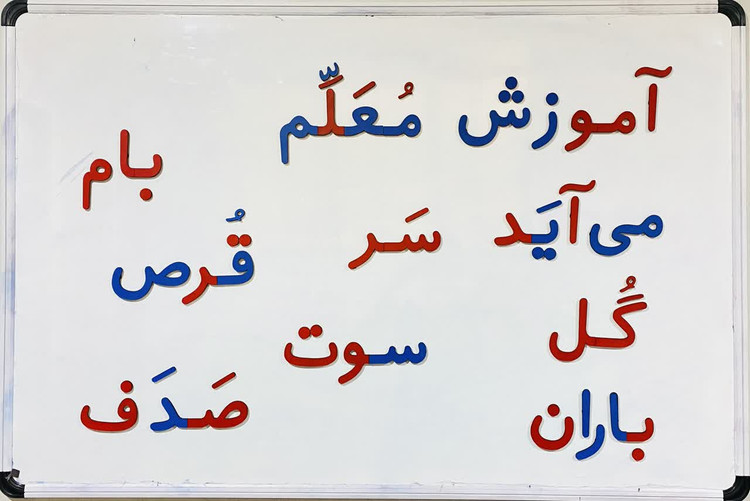 آموزش مُعَلِّم بام
می‌آیَد سَر قُرص
گُل سوت
باران صَدَف